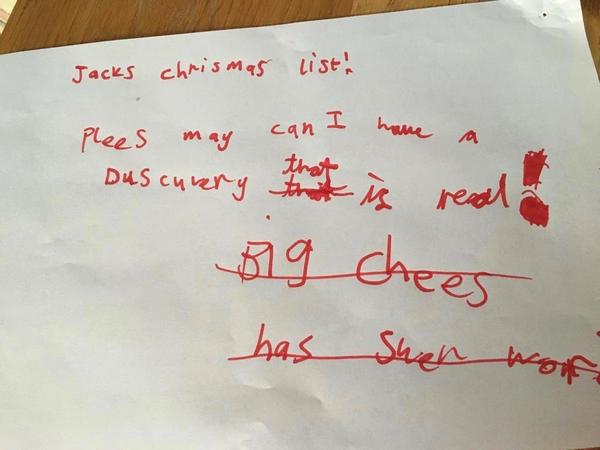 Jacks chrismas list!
Plees may can I have a
that
Duscuvery that is real!
Big chees
has swen